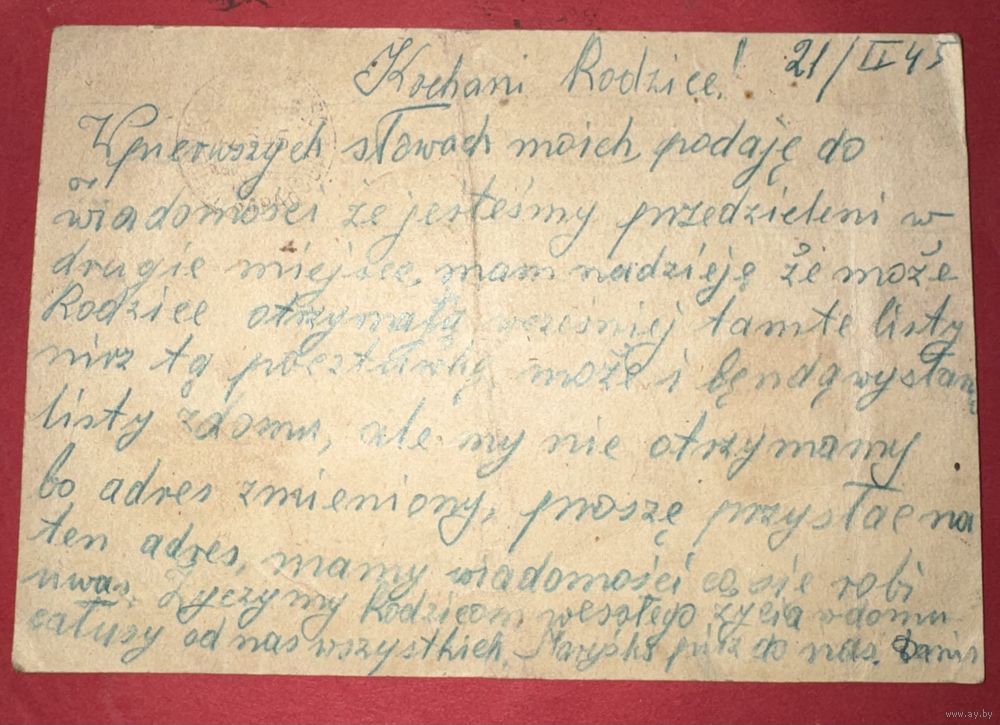 Kochani Rodzice! 21/II 45
W pierwszych słowach moich podaję do
wiadomości że jesteśmy przedzieleni w
drugie miejsce, mam nadzieję że może
Rodzice otrzymają wcześniej tamte listy
nirz tą pocztówkę może i będą wysłane
listy zdomu, ale my nie otrzymamy
bo adres zmieniony, proszę przysłac na
ten adres, mamy wiadomości co sie robi
uwas. Życzymy Rodzicom wesołego życia wdomu
całusy od nas wszystkich. pisz do nas.
www.ay.by